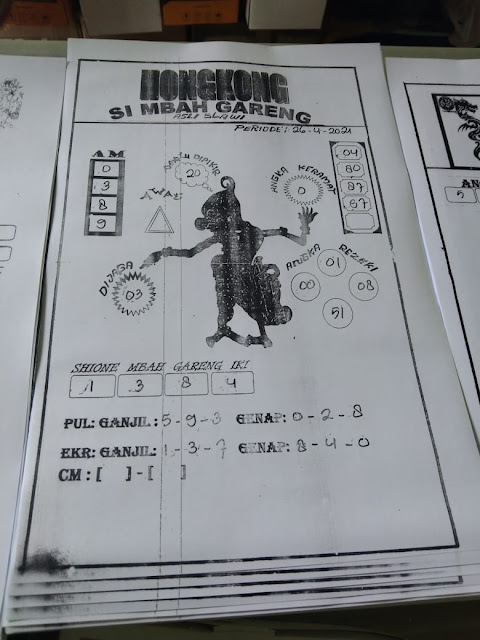 HONGKONG
SI MBAH GARENG
ASLI SLAWI
PERIODE: 26-4-2021
AM
0
3
8
9
MBAH DIPIKIR
20
AWAS
ANGKA KERAMAT
0
04
80
87
67
DIJAGA
03
ANGKA REZEKI
01
00
08
51
SHIONE MBAH GARENG IKI
1 3 8 4
PUL: GANJIL: 5-9-3 GENAP: 0-2-8
EKR: GANJIL: 1-3-7 GENAP: 8-4-0
CM : [ ] - [ ]
AN
5